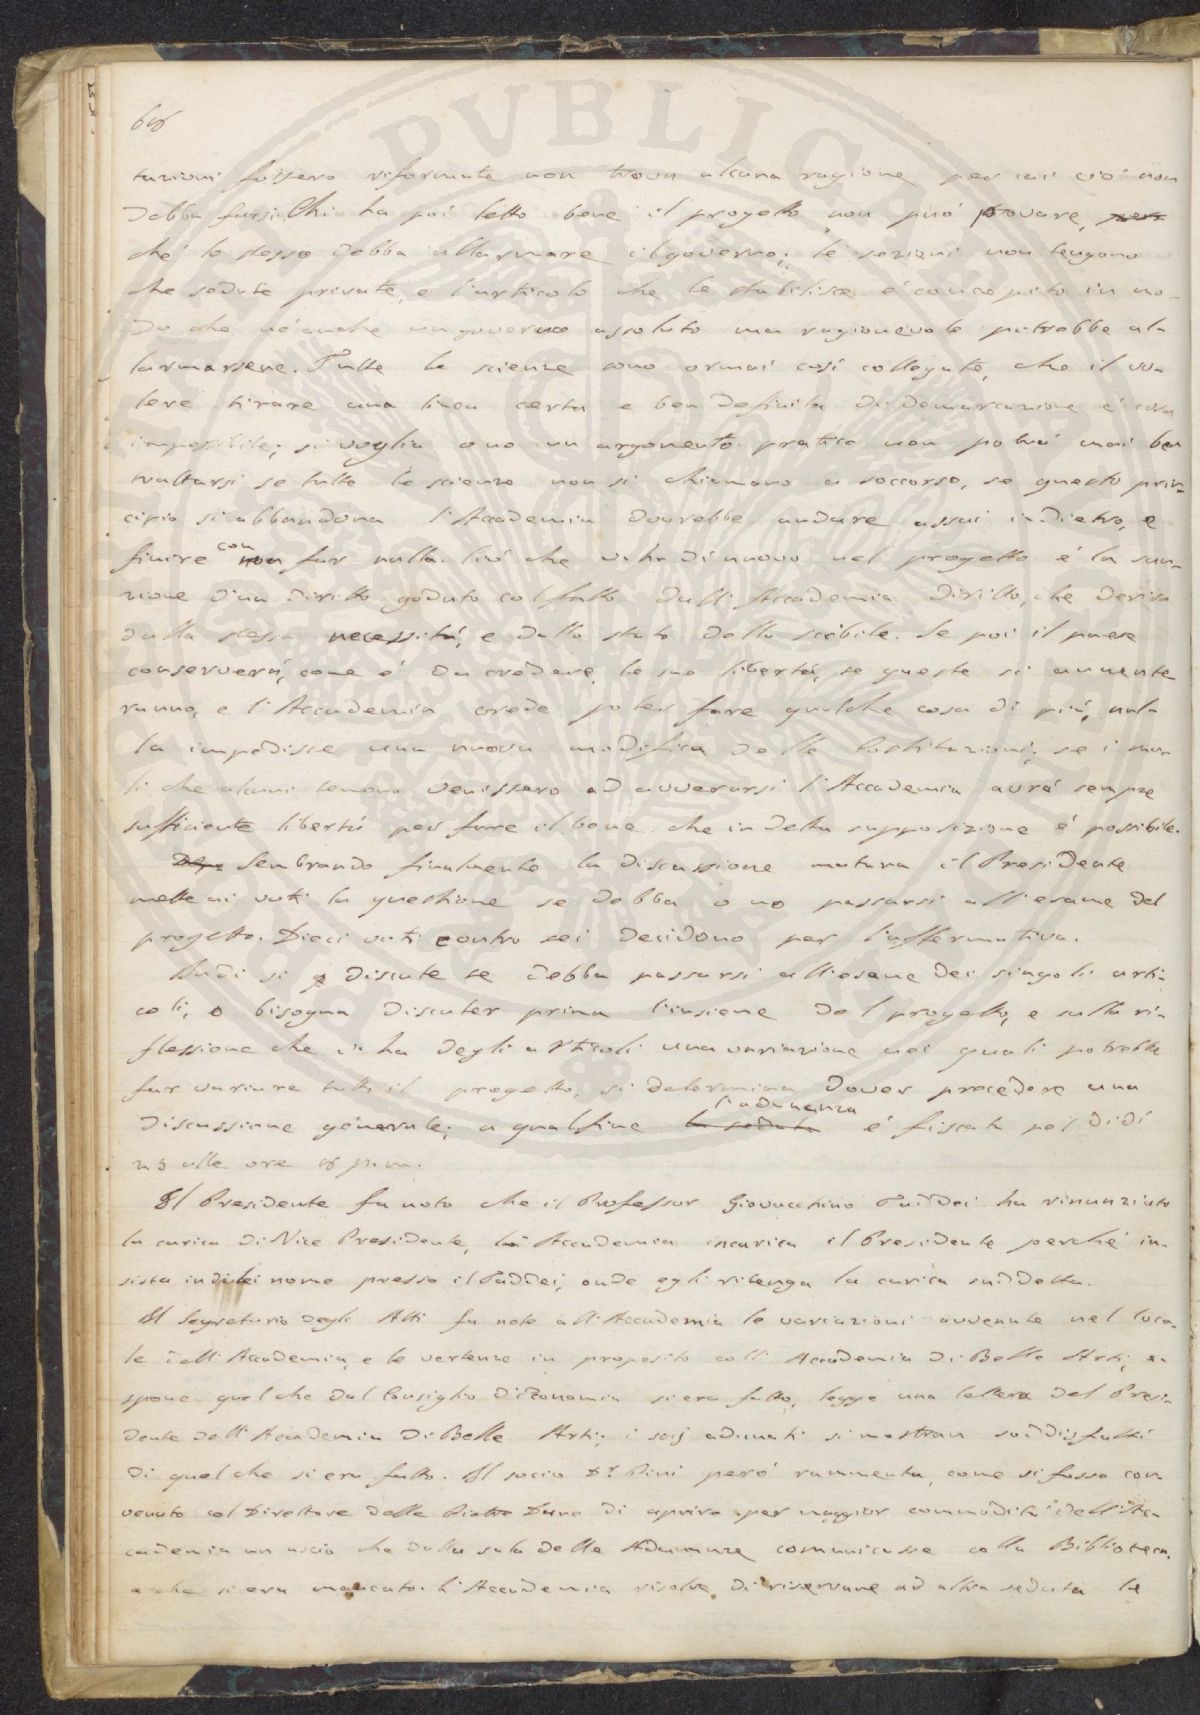 tuzioni fossero riformate non trova alcuna ragione per cui ciò non
debba farsi. Chi ha poi letto bene il progetto non può provare, per
ché lo stesso debba allarmare il governo; le sezioni non tengono
che sedute private, e l'articolo che le stabilisce è concepito in mo-
do che nè anche un governo assoluto ma ragionevole potrebbe al-
larmarsene. Tutte le scienze sono ormai così collegate, che il vo-
lere tirare una linea certa e ben definita di demarcazione è cosa
impossibile; si voglia o no un argomento pratico non potrà mai ben
trattarsi se tutte le scienze non si chiamano a soccorso, se questo prin-
cipio si abbandona l'Accademia dovrebbe andare assai indietro, e
finire con non far nulla. Ciò che v'ha di nuovo nel progetto è la san-
zione d'un diritto goduto col fatto dall'Accademia, diritto, che deriva
dalla stessa necessità, e dallo stato dello scibile. Se poi il paese
conserverà, come è da credere, le sue libertà, se queste si aumente
ranno, e l'Accademia crede poter fare qualche cosa di più, nul-
la impedisce una nuova modifica delle Costituzioni; se i ma-
li che alcuni temono venissero ad avverarsi l'Accademia avrà sempre
sufficiente libertà per fare il bene che in detta supposizione è possibile.
Sembrando finalmente la discussione matura il Presidente
mette ai voti la questione se debba o no passarsi all'esame del
progetto. Dieci voti contro sei decidono per l'affermativa.
Quindi si discute se debba passarsi all'esame dei singoli arti-
coli, o bisogna discuter prima l'insieme del progetto, e sulla ri-
flessione che v'ha degli articoli una variazione nei quali potrebbe
far variare tutto il progetto, si determina dover precedere una
discussione generale; a qual fine la seduta l'adunanza è fissata pel dì di
23 alle ore
Il Presidente fa noto che il Professor Giovacchino Taddei ha rinunziato
la carica di Vice Presidente, la Accademia incarica il Presidente perché in-
sista in di lei nome presso il Taddei, onde egli ritenga la carica suddetta.
Il Segretario degli Atti fa note all'Accademia le variazioni avvenute nel loca-
le dell'Accademia, e le vertenze in proposito coll'Accademia di Belle Arti; es-
pone quel che dal Consiglio d'Economia si era fatto, legge una lettera del Presi-
dente dell'Accademia di Belle Arti; i socj adunati si mostran soddisfatti
di quel che si era fatto. Il socio Dr. Pini però rammenta, come si fosse con-
venuto col Direttore delle Pietre Dure di aprire per maggior commodità dell'Ac-
cademia un uscio che dalla sala delle Adunanze comunicasse colla Biblioteca,
e che si era mancato. L'Accademia risolve di riservare ad altra seduta le